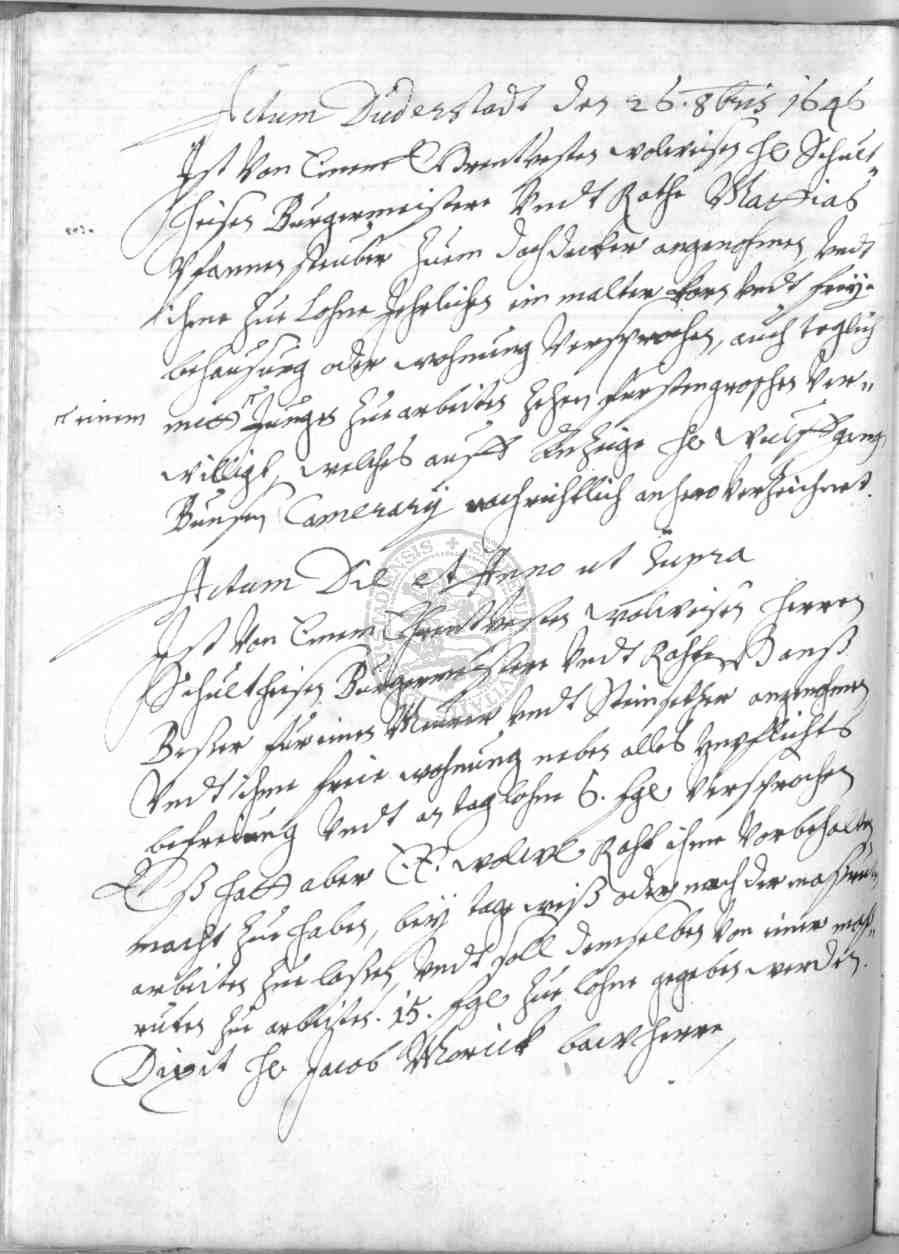 Actum Duderstadt den 26. 8bris 1646
Ist Von Einem Ehrentvesten wolweisen H. Schult-
heisen Bürgermeistere Vndt Rathe Mattias
Pfannen steuber zuem dachdecker angenohmen, Vndt
ihme zue Lohne Jehrlichen ein malter korn Vndt freye
behausung oder wohnung Versprochen, auch teglich
mitt Jungen zue arbeiten zehen fürstengroschen Ver-
einem
willigt, welches auff Anzeige H. Wulffgang
Bunsen Camerarij nachrichtlich anhero Verzeichnet.
Actum Die et Anno ut supra
Ist Von Einem Ehrentvesten wolweisen Herren
Schultheisen Bürgermeistere Vndt Rahte Hanß
Besser für einen Meurer Vndt Steinsetzer angenohmen
Vndt ihme freie wohnung neben alles
befreiung Vndt an taglohne 6. fgl Versprochen
Eß hatt aber E.E. wolw. Raht ihme Vorbehalten
macht zue haben, bey tageweiß oder nach der
arbeiten zue lassen, Vndt soll demselben Von einer
ruten zu arbeiten 15. fgl zue lohne gegeben werden.
Dixit H. Jacob Morick bawherre